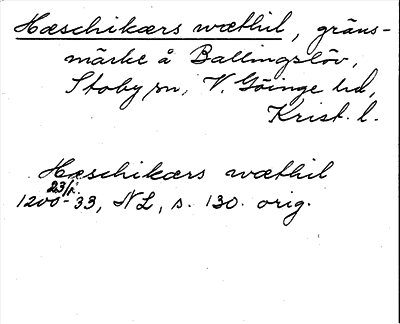 Hæschikærs wæthil, gräns-
märke å Ballingslöv,
Stoby sn, V. Göinge hd,
Krist. l.
Hæschikærs wæthil
23/1
1200-33, NL, s. 130. orig.